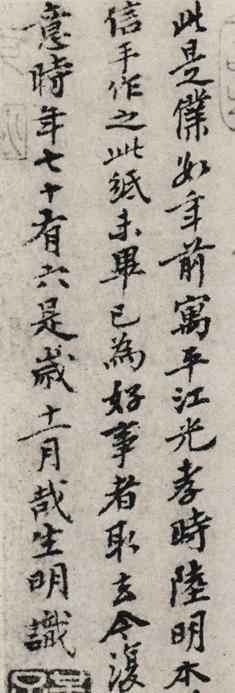 此是僕年前寓平江光孝時陸明本
信手作之此紙未畢已為好事者取去今復
意時年七十有六是歲十一月哉生明識